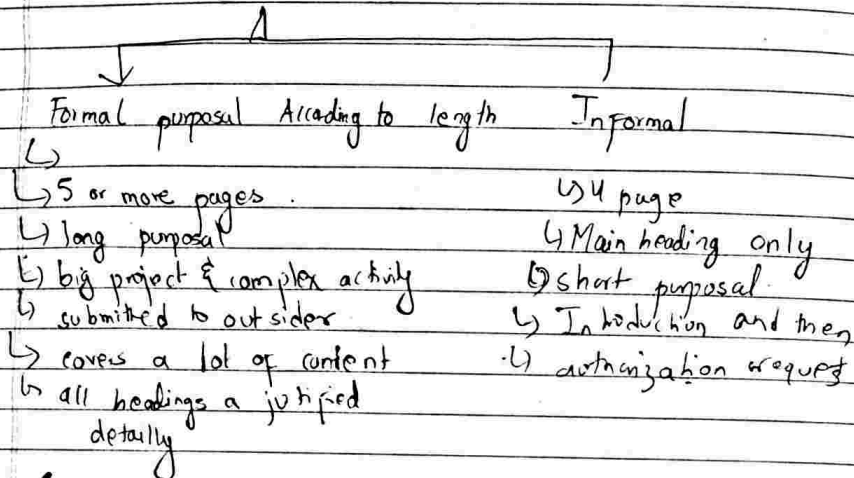 Formal purposal According to length Informal
5 or more pages.
long purposal
big project & complex activity
submitted to outsider
covers a lot of content
all headings a jutified
detailly
4 page
Main heading only
short purposal
Introduction and then
authorization request